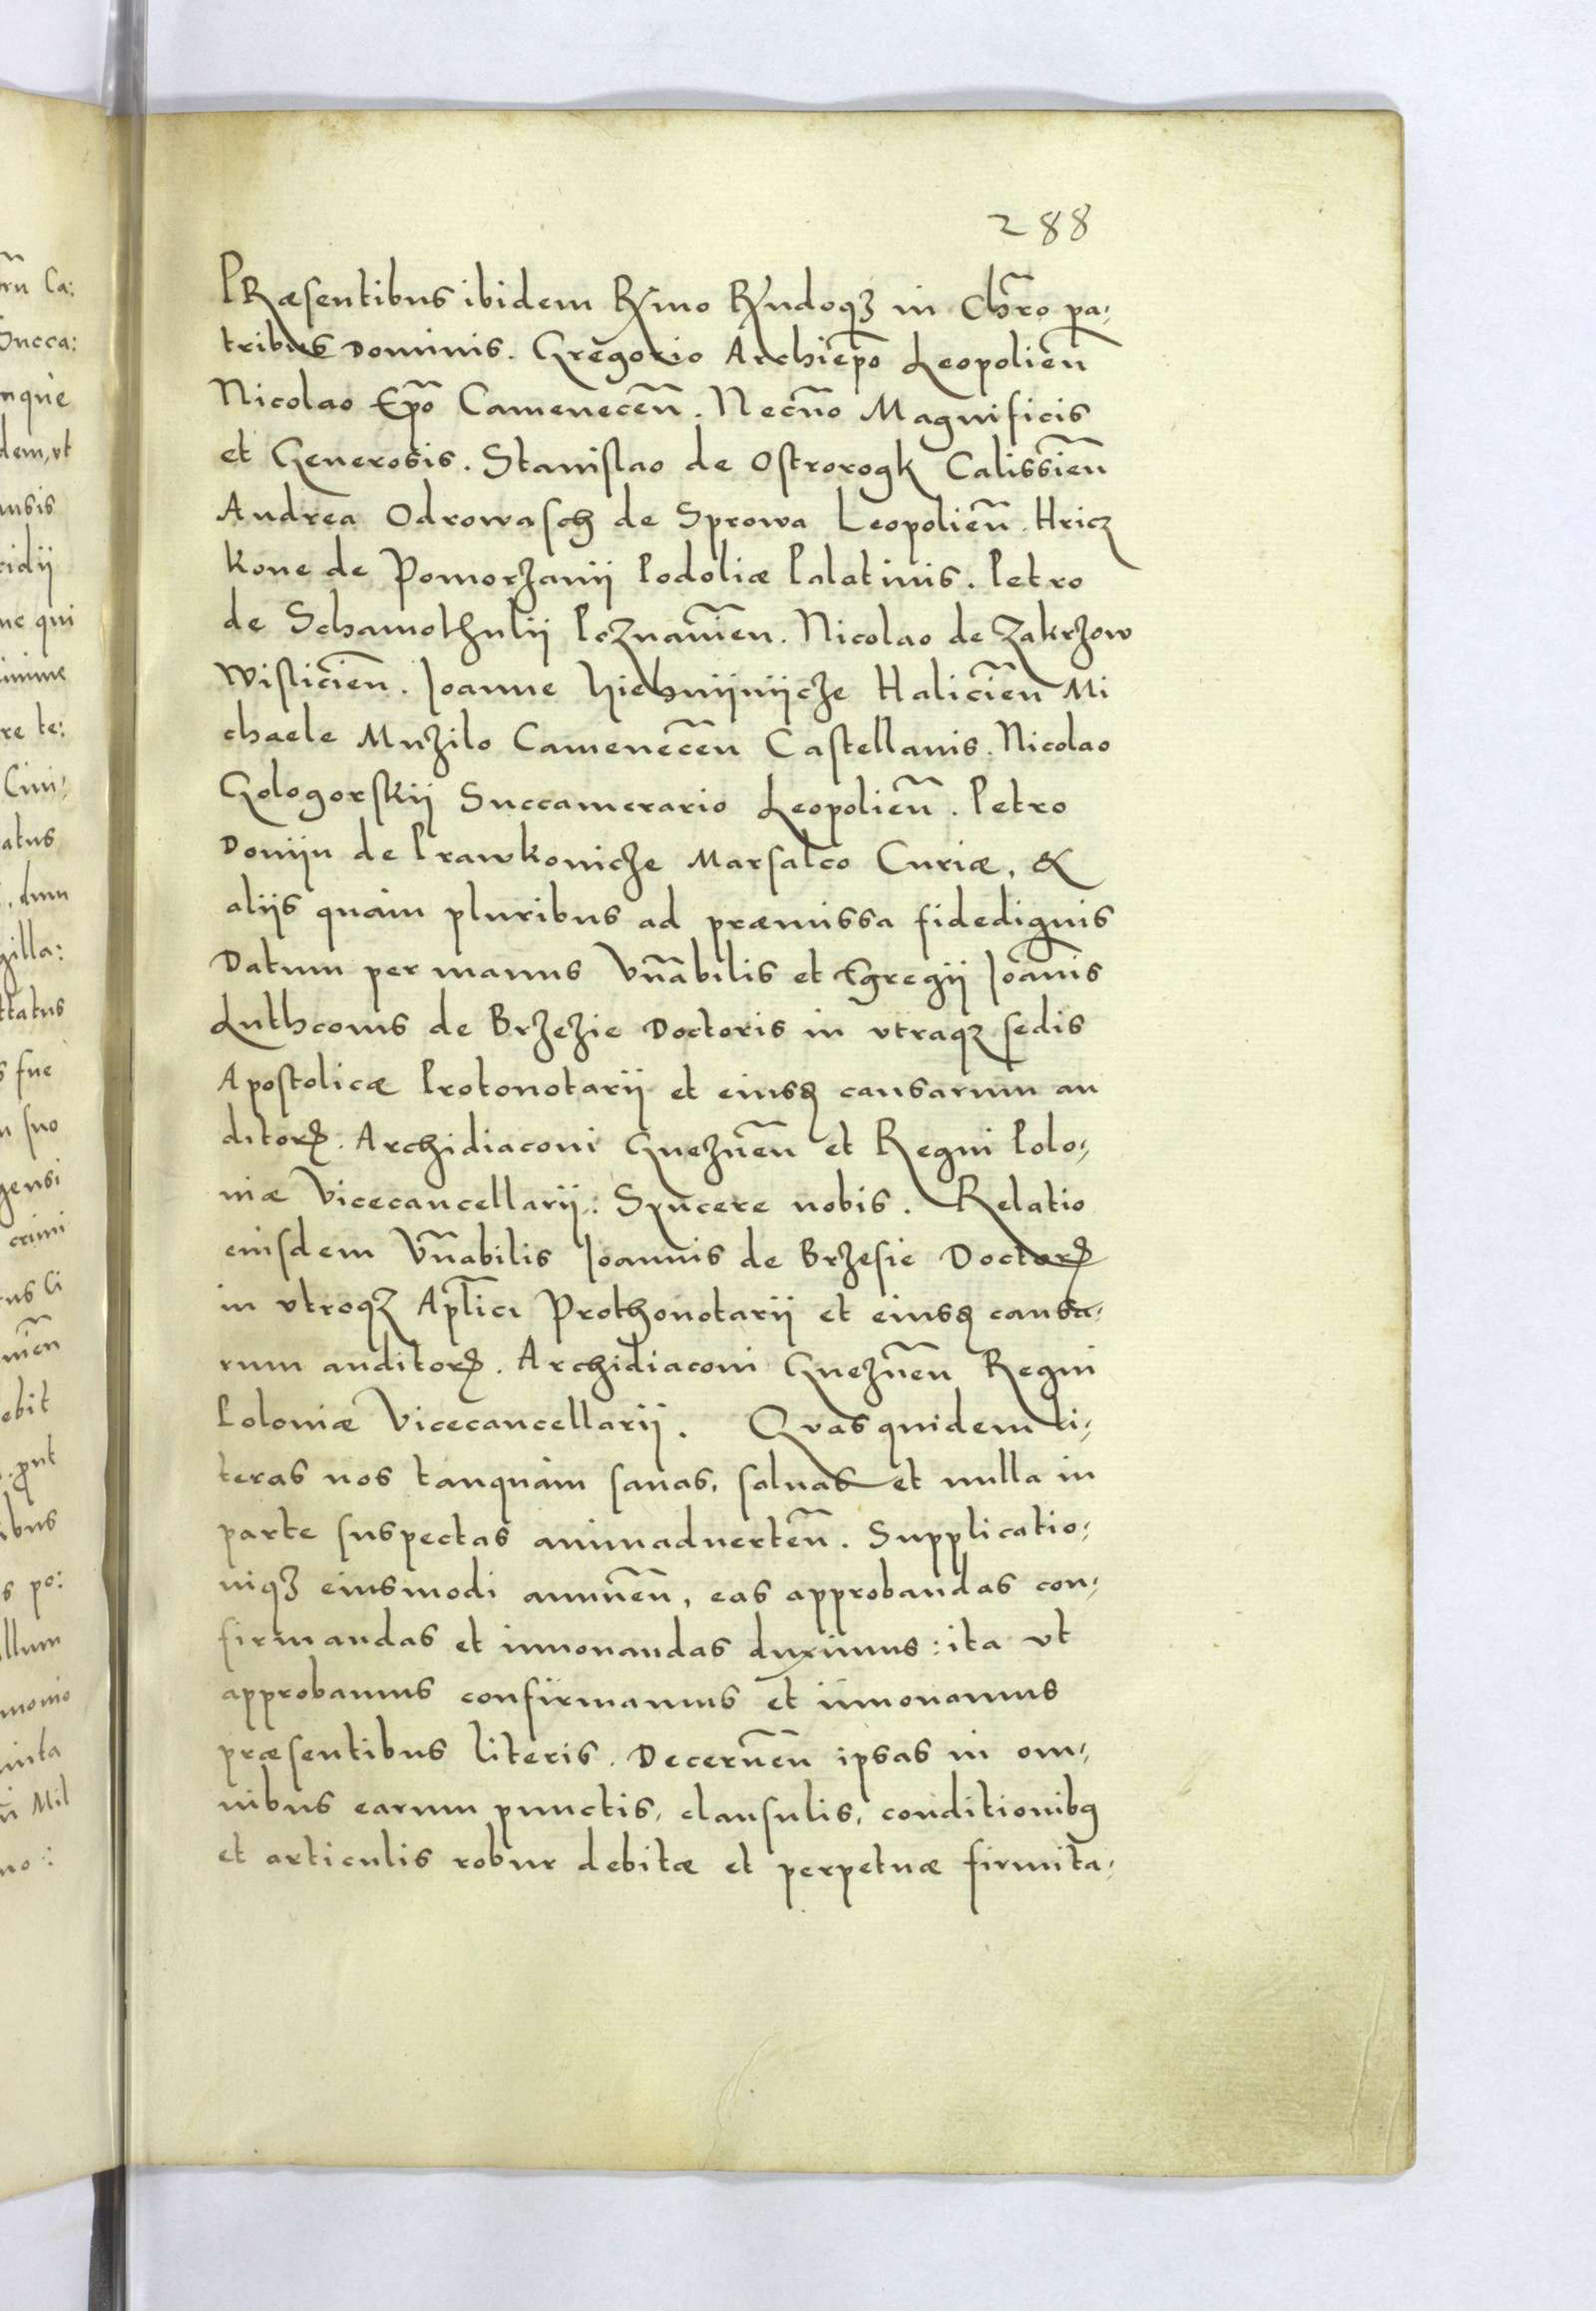 288
PRæsentibus ibidem Rx̃mo Rx̃ndoqꝫ in Chr̃o pa,
tribus Dominis. Gregorio Archiep̃o Leopolien̄
Nicolao Ep̃o Camenecen̄. Necñō Magnificis
et Generosis. Stanislao de Ostrorogk Calissien̄
Andrea Odrowasch de Sprowa Leopolien̄. Hricz
kone de Pomorzanij Podoliæ Palatinis. Petro
de Schamothulij Poznanien. Nicolao de Zakrzow
Wislicien̄. Joanne Hiehnijnijcze Halicien̄ Mi
chaele Muzilo Camenecen̄ Castellanis. Nicolao
Gologorskij Succamerario Leopolien̄. Petro
Donijn de Prawkonicze Marsalco Curiæ, &
aliis quàm pluribus ad præmissa fidedignis
Datum per manus Vñabilis et Egregij Joãnis
Luthconis de Brzezie Doctoris in vtraqꝫ sedis
Apostolicæ Protonotarij et eiusꝗ causarum au
ditorꝭ. Archidiaconi Gneznen̄ et Regni Polo,
niæ Vicecancellarij: Syncere nobis. Relatio
eiusdem Vñabilis Joannis de Brzesie Doctorꝭ
in vtroqꝫ Apl̃ici Prothonotarij et eiusꝗ causa,
rum auditorꝭ. Archidiaconi Gneznen̄ Regni
Poloniæ Vicecancellarij. Qvas quidem li,
teras nos tanquàm sanas, saluas et nulla in
parte suspectas animaduerten̄. Supplicatio,
niqꝫ eiusmodi annuen̄, eas approbandas con,
firmandas et innouandas duximus: ita vt
approbamus confirmamus et innouamus
præsentibus literis. Decernen̄ ipsas in om,
nibus earum punctis, clausulis, conditionibꝯ
et articulis robur debitæ et perpetuæ firmita,